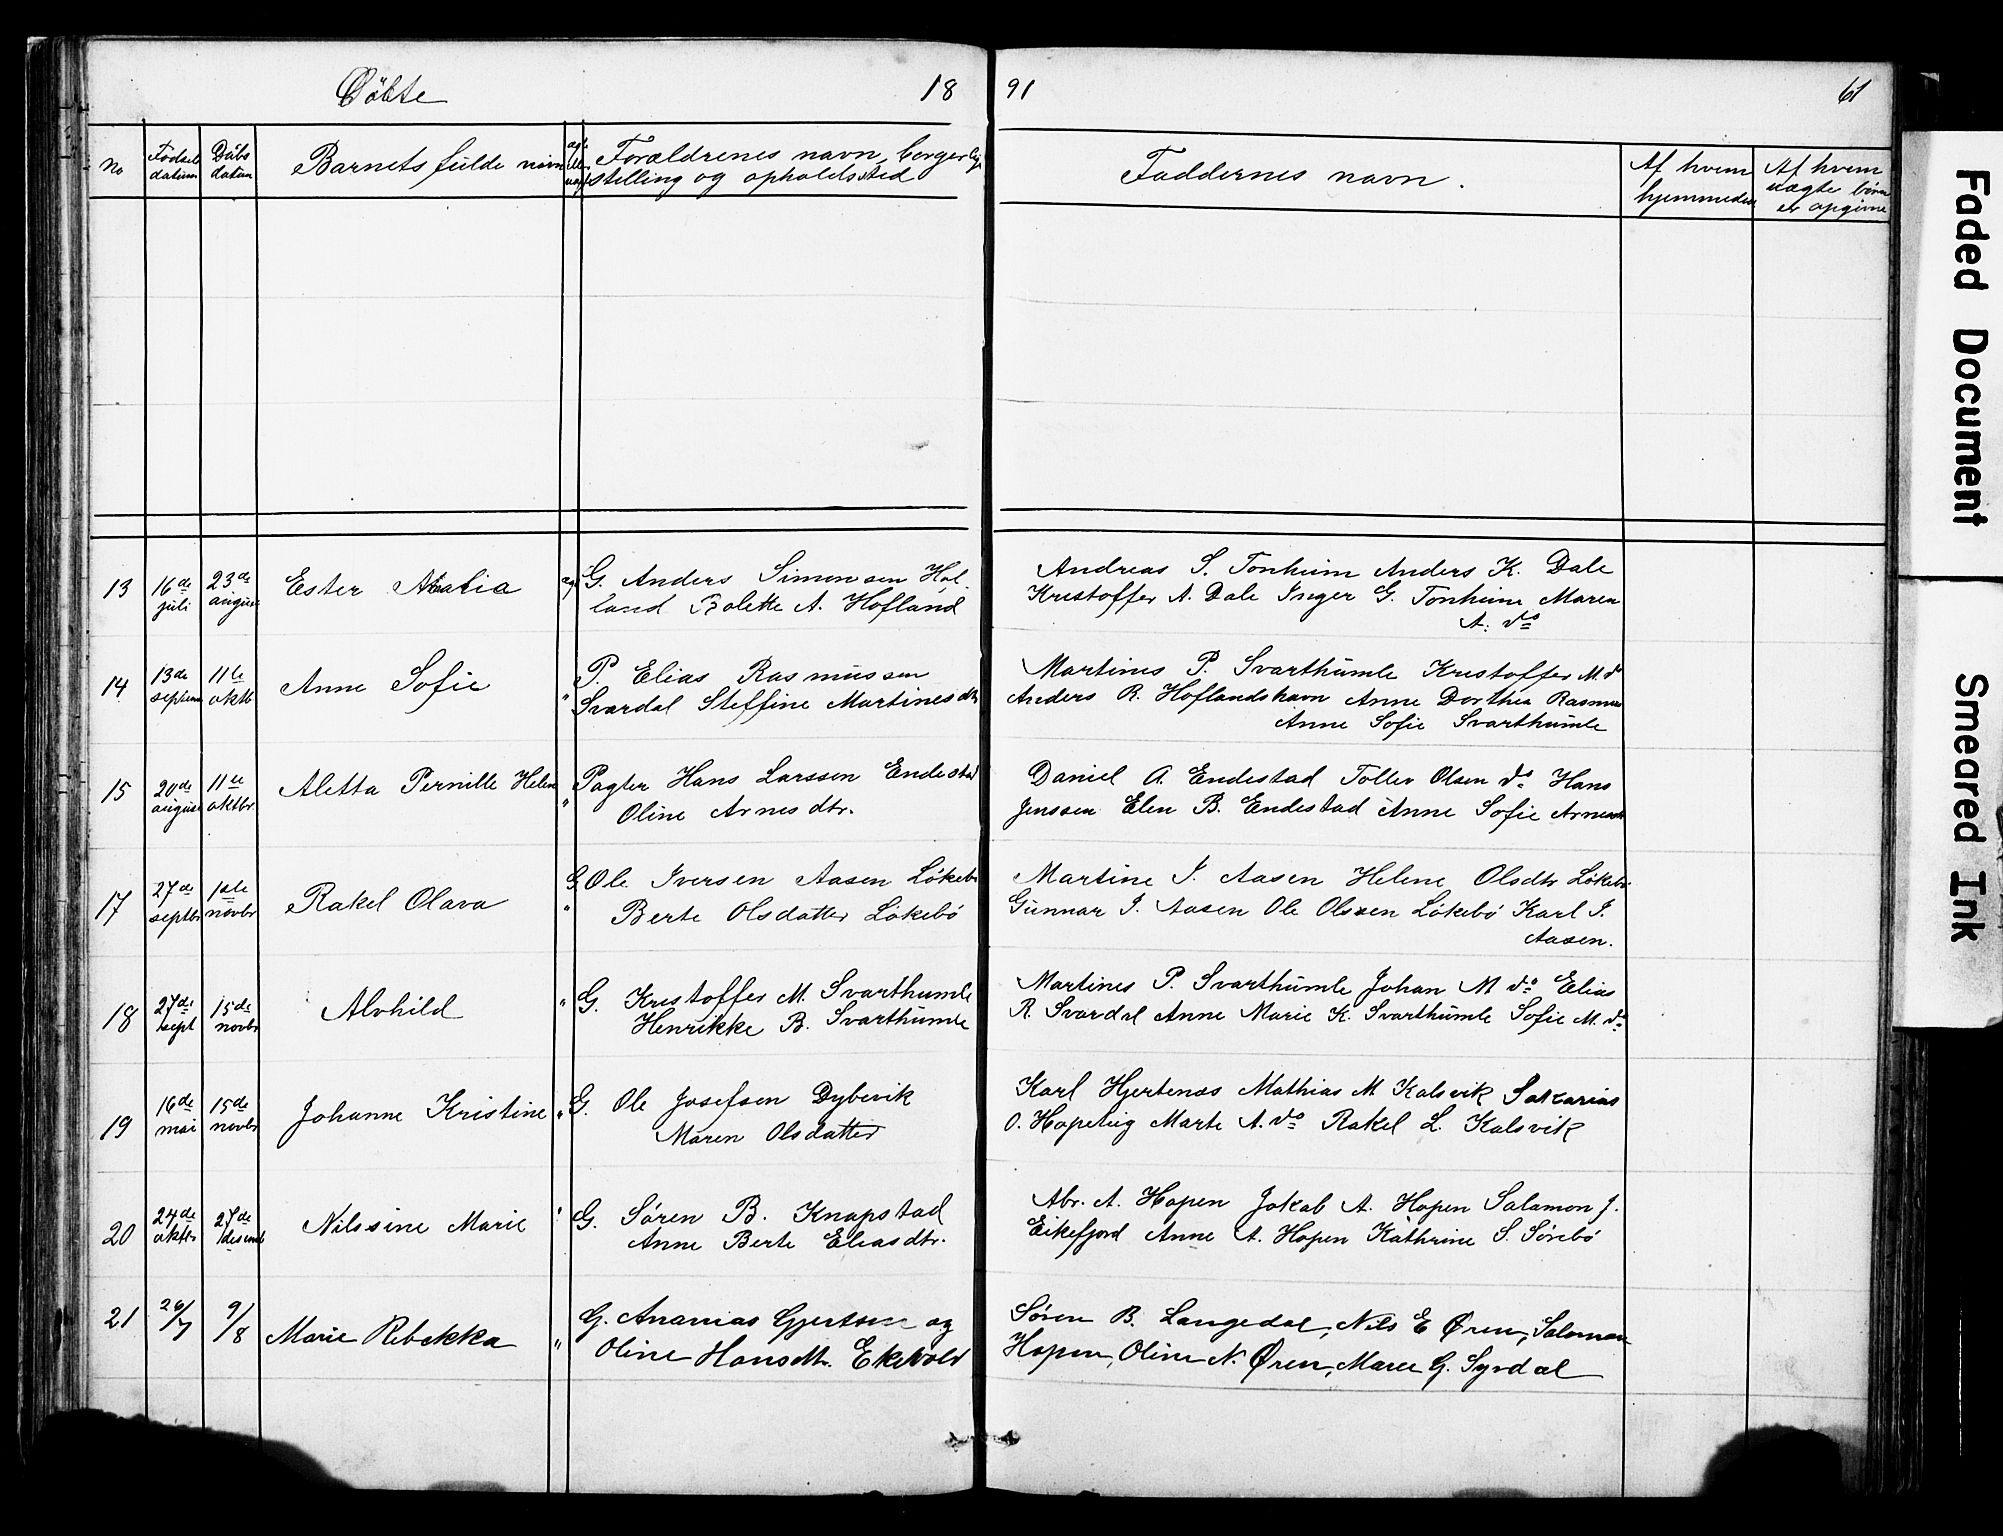 Döbte 18 91 61
No Födsels datum Dåbs datum Barnets fulde navn Forældrenes navn, borgerlige stilling og opholdssted Faddernes navn. Af hvem hjemmedøbt Af hvem uægte børn er opgivne
13 16de juli 23de august Ester Amalia G. Anders Simonsen Hof-
land Bolette A. Hofland
Andreas S. Tonheim Anders K. Dale
Kristoffer A. Dale Inger G. Tonheim Maren
A. do
14 13de septem 11te oktb Anne Sofie " P. Elias Rasmussen
Svardal Steffine Martinesdtr
Martines P. Svarthumle Kristoffer M. do
Anders R. Hoflandshavn Anne Dorthea Rasmus
Anne Sofie Svarthumle
15 20de august 11te oktbr Aletta Pernille Helene " Pagter Hans Larssen Endestad
Oline Arnesdtr.
Daniel A. Endestad Tollev Olsen do Hans
Jenssen Elen B. Endestad Anne Sofie Arnesdtr
17 27de septbr 1ste novbr Rakel Olava " G. Ole Iversen Aasen Lökebö
Berte Olsdatter Lökebö
Martine I. Aasen Helene Olsdtr Lökebö
Gunnar I. Aasen Ole Olssen Lökebö Karl I.
Aasen.
18 27de sept 15de novbr Alvhild " G. Kristoffer M. Svarthumle
Henrikke B. Svarthumle
Martines P. Svarthumle Johan M do Elias
R. Svardal Anne Marie K. Svarthumle Sofie M. do
19 16de mai 15de novbr Johanne Kristine " G. Ole Josefsen Dybevik
Maren Olsdatter
Karl Hjertenæs Mathias M Kalsvik Sakarias
O. Hopeteig Marte A. do Rakel L. Kalsvik
20 24de oktbr 27de desemb Nilssine Marie " G. Sören B. Knapstad
Anne Berte Eliasdtr.
Abr. A. Hopen Jakob A. Hopen Salamon J.
Eikefjord Anne A. Hopen Kathrine S. Sörebö
21 26/7 9/8 Marie Rebekka " G. Ananias Gjertsen og
Oline Hansdtr. Ekevold
Søren B. Langedal, Nils E Øren, Salamon
Hopen, Oline N. Øren, Maren G. Syrdal
Faded Document
Smeared Ink